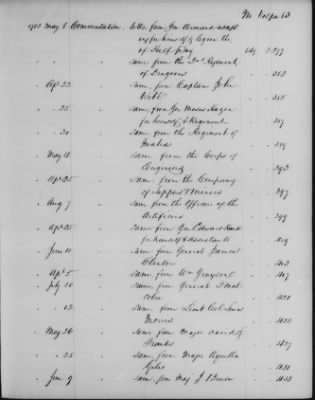 No Volpa 63
1783 May 8 Commutation letter from Gen Armand accep
ting for himself & Legion the
of Half pay 149 2 277
same from the 2d Regiment
of Dragoons 283
Apr 22 same from Captain John
Webb 285
" 25 same from Gen Moses Hazen
for himself & Regiment 287
" 20 same from the Regiment of
Invalids 289
May 18 same from the Corps of
Engineers 293
Apr 25 same from the Company
of Sappers & Miners 297
Aug 7 same from the Officers of the
Artificers 299
Apr 25 same from Gen Edward Hand
for himself & assistants 409
Jun 11 same from General James
Clinton 413
Apr 5 same from Wm Grayson 417
July 26 same from General
" 12 same from Lieut Col Lewis
Morris
May 26 same from Major David S
Franks 427
" 25 same from Major Aquilla
Giles
Jun 9 same from Maj J